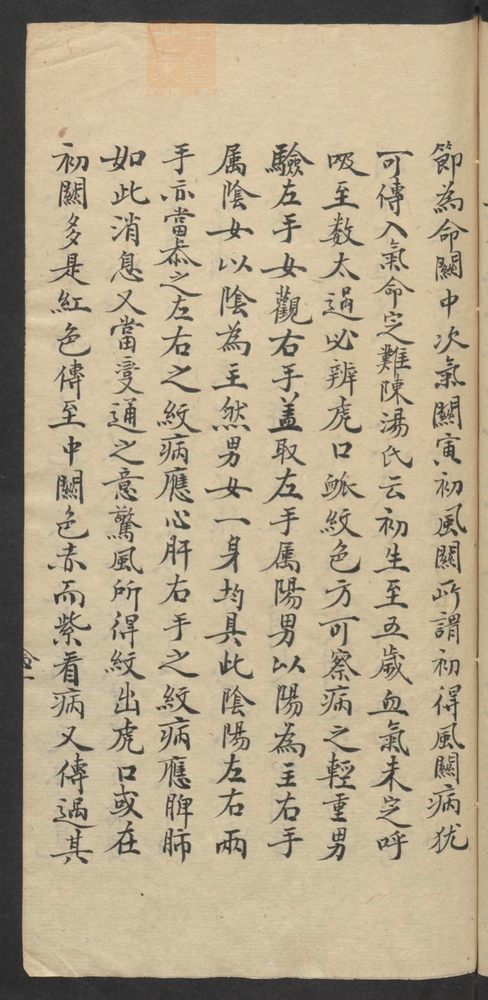 節為命關中次氣關寅初風關所謂初得風關病犹
可傳入氣命定難陳湯氏云初生至五歲血氣未定呼
吸至数太過必辨虎口脈紋色方可察病之輕重男
驗左手女觀右手盖取左手属陽男以陽為主右手
属陰女以陰為主然男女一身均具此陰陽左右兩
手亦當叅之左右之紋病應心肝右手之紋病應脾肺
如此消息又當变通之意驚風所得紋出虎口或在
初關多是紅色傳至中關色赤而紫看病又傳過其